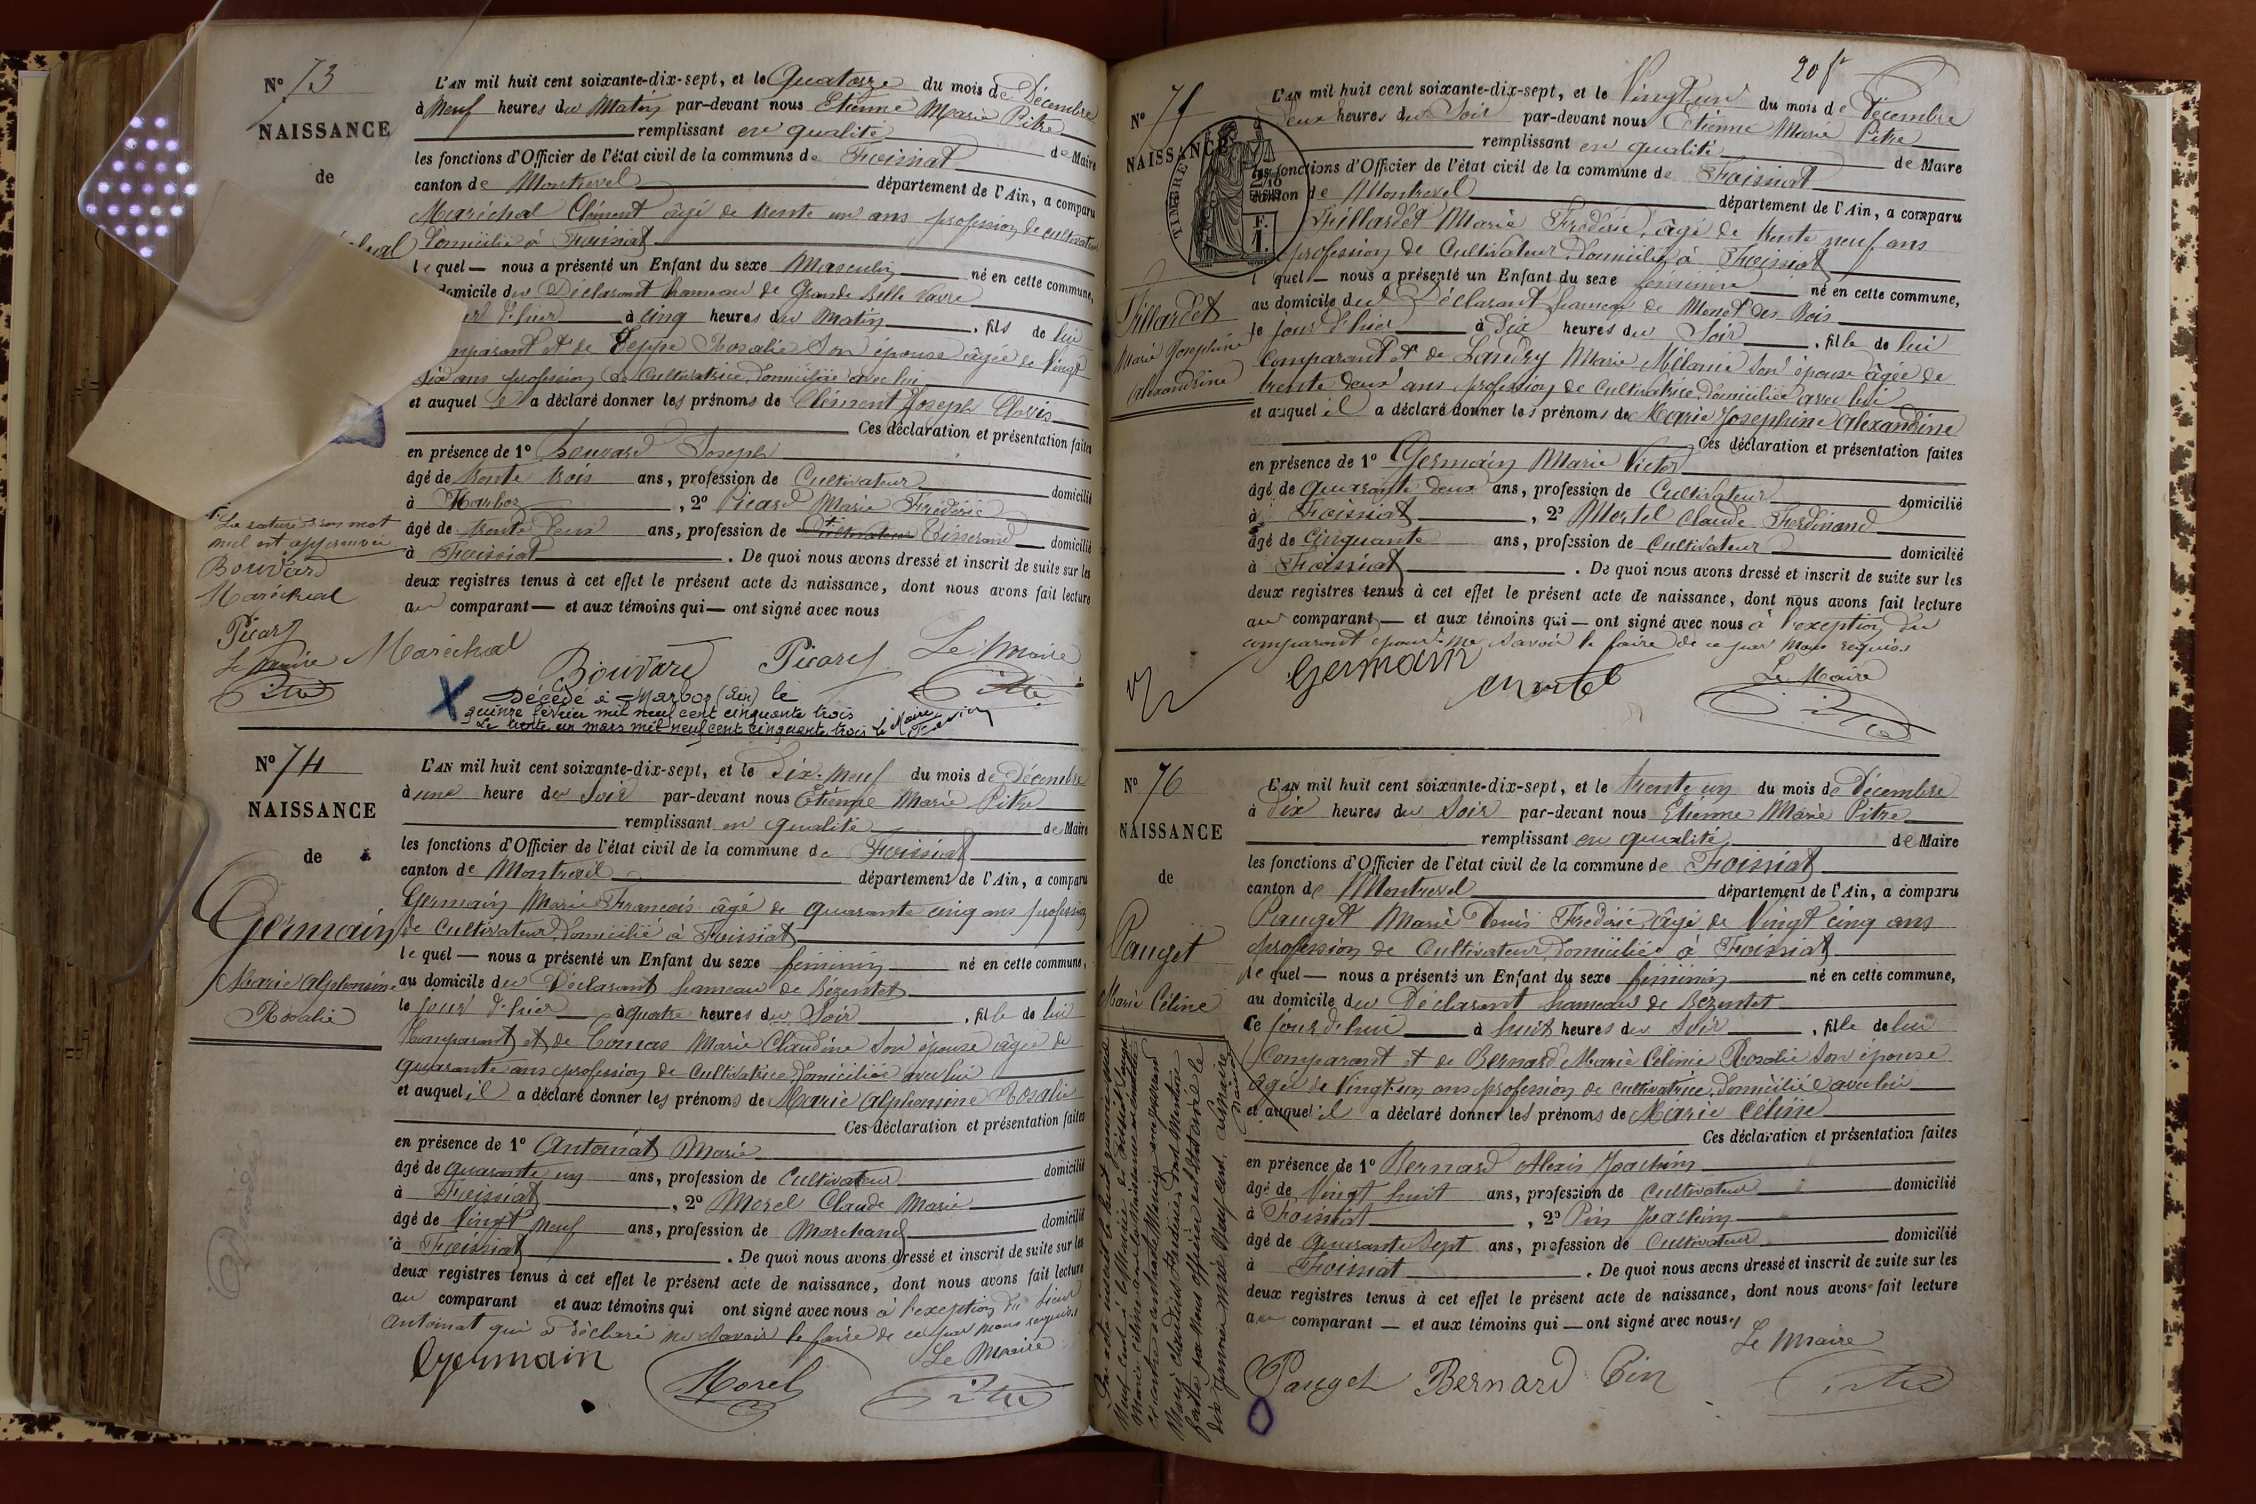 N° 73
NAISSANCE
de
L'AN mil huit cent soixante-dix-sept, et le Quatorze du mois de Décembre
à Neuf heures du Matin par-devant nous Etienne Marie Pitre
remplissant en qualité
les fonctions d'Officier de l'état civil de la commune de Foissiat de Maire
canton de Montrevel département de l'Ain, a comparu
Maréchal Clément âgé de trente un ans profession de cultivateur
domicilié à Foissiat
lequel nous a présenté un Enfant du sexe Masculin né en cette commune,
domicile du Déclarant hameau de Grande Selle
d'hier à cinq heures du Matin, fils de lui
comparant et de Teppe Rosalie Son épouse âgée de Vingt
six ans profession de Cultivatrice domiciliée avec lui
et auquel il a déclaré donner les prénoms de Clément Joseph Clovis
Ces déclaration et présentation faites
en présence de 1° Bouvard Joseph
âgé de trente trois ans, profession de Cultivateur domicilié
à Marboz, 2° Picard Marie Frédéric
âgé de trente deux ans, profession de cultivateur Tisserand domicilié
à Foissiat. De quoi nous avons dressé et inscrit de suite sur les
deux registres tenus à cet effet le présent acte de naissance, dont nous avons fait lecture
au comparant et aux témoins qui ont signé avec nous
La rature d'un mot
nul est approuvée
Bouvard
Maréchal
Picard
Le Maire
Pitre
Maréchal Bouvard Picard Le Maire
Pitre
X Décédé à Marboz (Ain) le
quinze février mil neuf cent cinquante trois
Le trente un mars mil neuf cent cinquante trois Le Maire
N° 74
NAISSANCE
de
Germain
Marie Alphonsine
Rosalie
L'AN mil huit cent soixante-dix-sept, et le Dix-neuf du mois de Décembre
à une heure du Soir par-devant nous Etienne Marie Pitre
remplissant en qualité de Maire
les fonctions d'Officier de l'état civil de la commune de Foissiat
canton de Montrevel département de l'Ain, a comparu
Germain Marie François âgé de quarante cinq ans profession
de Cultivateur domicilié à Foissiat
lequel nous a présenté un Enfant du sexe féminin né en cette commune,
au domicile du Déclarant hameau de Bezentet
le jour d'hier à quatre heures du Soir, fille de lui
Comparant et de Comas Marie Claudine Son épouse âgée de
quarante ans profession de cultivatrice domiciliée avec lui
et auquel il a déclaré donner les prénoms de Marie Alphonsine Rosalie
Ces déclaration et présentation faites
en présence de 1° Antoinat Marie
âgé de quarante un ans, profession de Cultivateur domicilié
à Foissiat, 2° Morel Claude Marie
âgé de Vingt neuf ans, profession de Marchand domicilié
à Foissiat. De quoi nous avons dressé et inscrit de suite sur les
deux registres tenus à cet effet le présent acte de naissance, dont nous avons fait lecture
au comparant et aux témoins qui ont signé avec nous à l'exception du sieur
Antoinat qui a déclaré ne savoir le faire de ce par nous requis
Germain Morel Le Maire
Pitre
20 f
N° 75
NAISSANCE
TIMBRE
Fillardet
Marie Josephine
Alexandrine
L'AN mil huit cent soixante-dix-sept, et le Vingt un du mois de Décembre
deux heures du Soir par-devant nous Etienne Marie Pitre
remplissant en qualité de Maire
les fonctions d'Officier de l'état civil de la commune de Foissiat
canton de Montrevel département de l'Ain, a comparu
Fillardet Marie Frédéric, âgé de trente neuf ans
profession de Cultivateur domicilié à Foissiat
lequel nous a présenté un Enfant du sexe féminin né en cette commune,
au domicile du Déclarant hameau de Monet des Bois
le jour d'hier à Dix heures du Soir, fille de lui
Comparant et de Landry Marie Mélanie Son épouse âgée de
trente deux ans profession de Cultivatrice domiciliée avec lui
et auquel il a déclaré donner les prénoms de Marie Josephine Alexandrine
Ces déclaration et présentation faites
en présence de 1° Germain Marie Victor
âgé de quarante deux ans, profession de Cultivateur domicilié
à Foissiat, 2° Mortel Claude Ferdinand
âgé de Cinquante ans, profession de Cultivateur domicilié
à Foissiat. De quoi nous avons dressé et inscrit de suite sur les
deux registres tenus à cet effet le présent acte de naissance, dont nous avons fait lecture
au comparant et aux témoins qui ont signé avec nous à l'exception du
comparant pour ne savoir le faire de ce par nous requis
Germain Mortel Le Maire
Pitre
N° 76
NAISSANCE
de
Pauget
Marie Céline
L'AN mil huit cent soixante-dix-sept, et le trente un du mois de Décembre
à Dix heures du Soir par-devant nous Etienne Marie Pitre
remplissant en qualité de Maire
les fonctions d'Officier de l'état civil de la commune de Foissiat
canton de Montrevel département de l'Ain, a comparu
Pauget Marie Denis Frédéric, âgé de Vingt cinq ans
profession de Cultivateur domicilié à Foissiat
lequel nous a présenté un Enfant du sexe féminin né en cette commune,
au domicile du Déclarant hameau de Bezentet
ce jourd'hui à huit heures du Soir, fille de lui
Comparant et de Bernard Marie Célinie Rosalie Son épouse
âgée de Vingt un ans profession de cultivatrice domiciliée avec lui
et auquel il a déclaré donner les prénoms de Marie Céline
Ces déclaration et présentation faites
en présence de 1° Bernard Alexis Joachim
âgé de Vingt huit ans, profession de Cultivateur domicilié
à Foissiat, 2° Pin Joachim
âgé de quarante Sept ans, profession de Cultivateur domicilié
à Foissiat. De quoi nous avons dressé et inscrit de suite sur les
deux registres tenus à cet effet le présent acte de naissance, dont nous avons fait lecture
au comparant et aux témoins qui ont signé avec nous
Pauget Bernard Pin Le Maire
Pitre